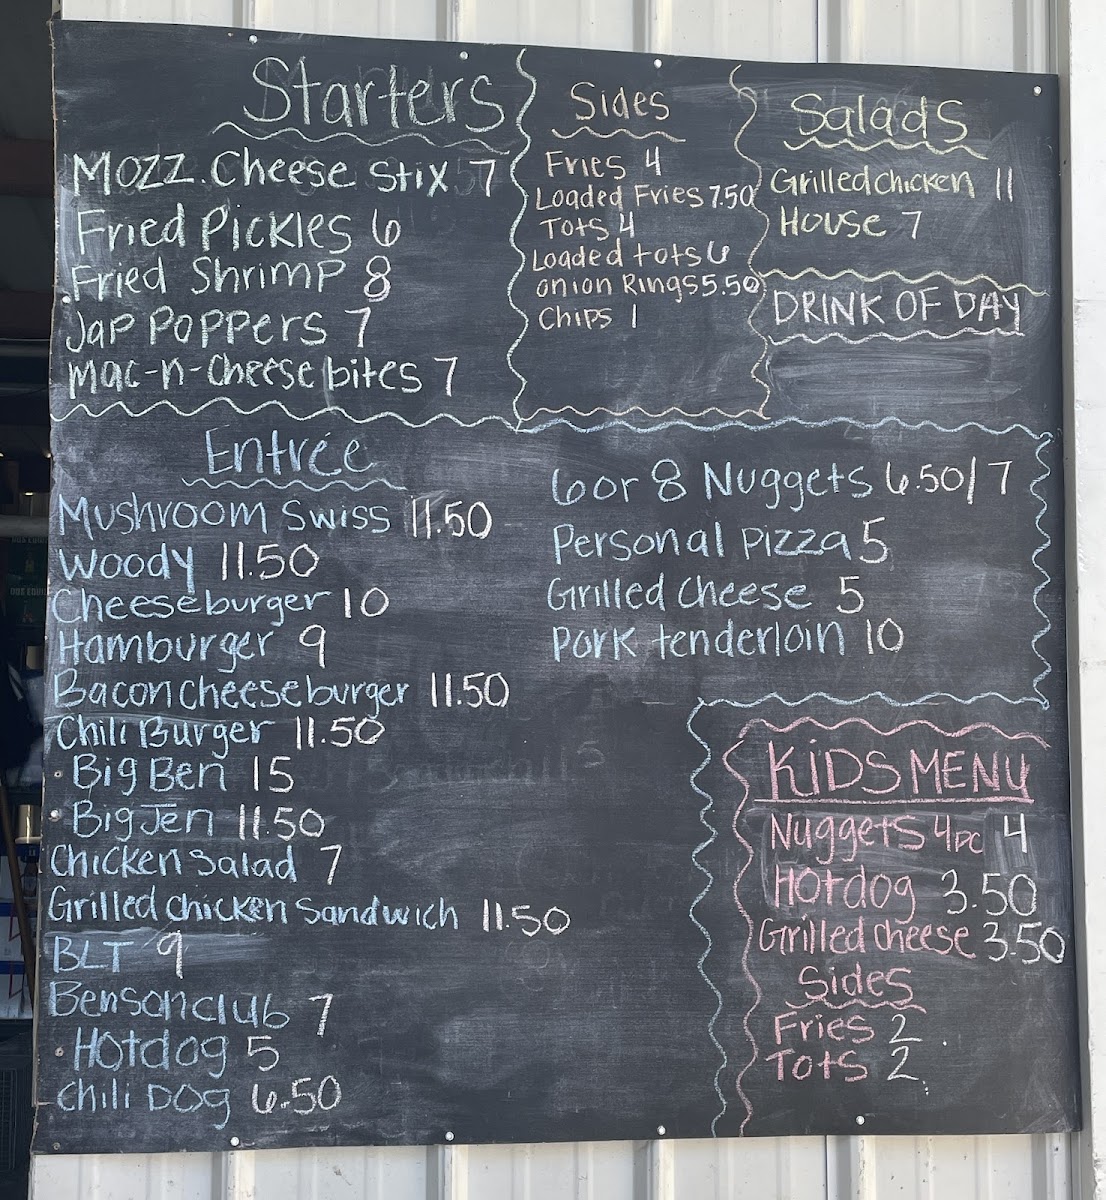 Starters
Mozz. Cheese Stix 7
Fried Pickles 6
Fried Shrimp 8
Jap Poppers 7
Mac-n-Cheese bites 7
Sides
Fries 4
Loaded Fries 7.50
Tots 4
Loaded tots 6
onion Rings 5.50
Chips 1
Salads
Grilled chicken 11
House 7
DRINK OF DAY
Entrée
Mushroom Swiss 11.50
Woody 11.50
Cheeseburger 10
Hamburger 9
Bacon cheeseburger 11.50
Chili Burger 11.50
Big Ben 15
Big Jen 11.50
Chicken Salad 7
Grilled chicken Sandwich 11.50
BLT 9
Benson club 7
Hotdog 5
Chili Dog 6.50
6 or 8 Nuggets 6.50/7
Personal Pizza 5
Grilled cheese 5
Pork tenderloin 10
KiDS MENU
Nuggets 4pc 4
Hotdog 3.50
Grilled cheese 3.50
Sides
Fries 2
Tots 2